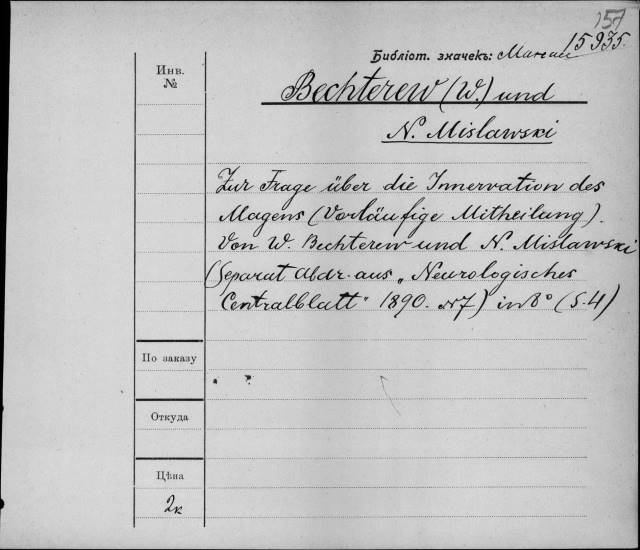 157
Библіот. значек: 15935.
Инв.
№
Bechterew (W.) und
N. Mislawski
Zur Frage über die Innervation des
Magens (Vorläufige Mittheilung).
Von W. Bechterew und N. Mislawski
(Separat Abdr. aus „Neurologisches
Centralblatt" 1890. №7) in 8° (S. 4)
По заказу
Откуда
Цѣна
2к